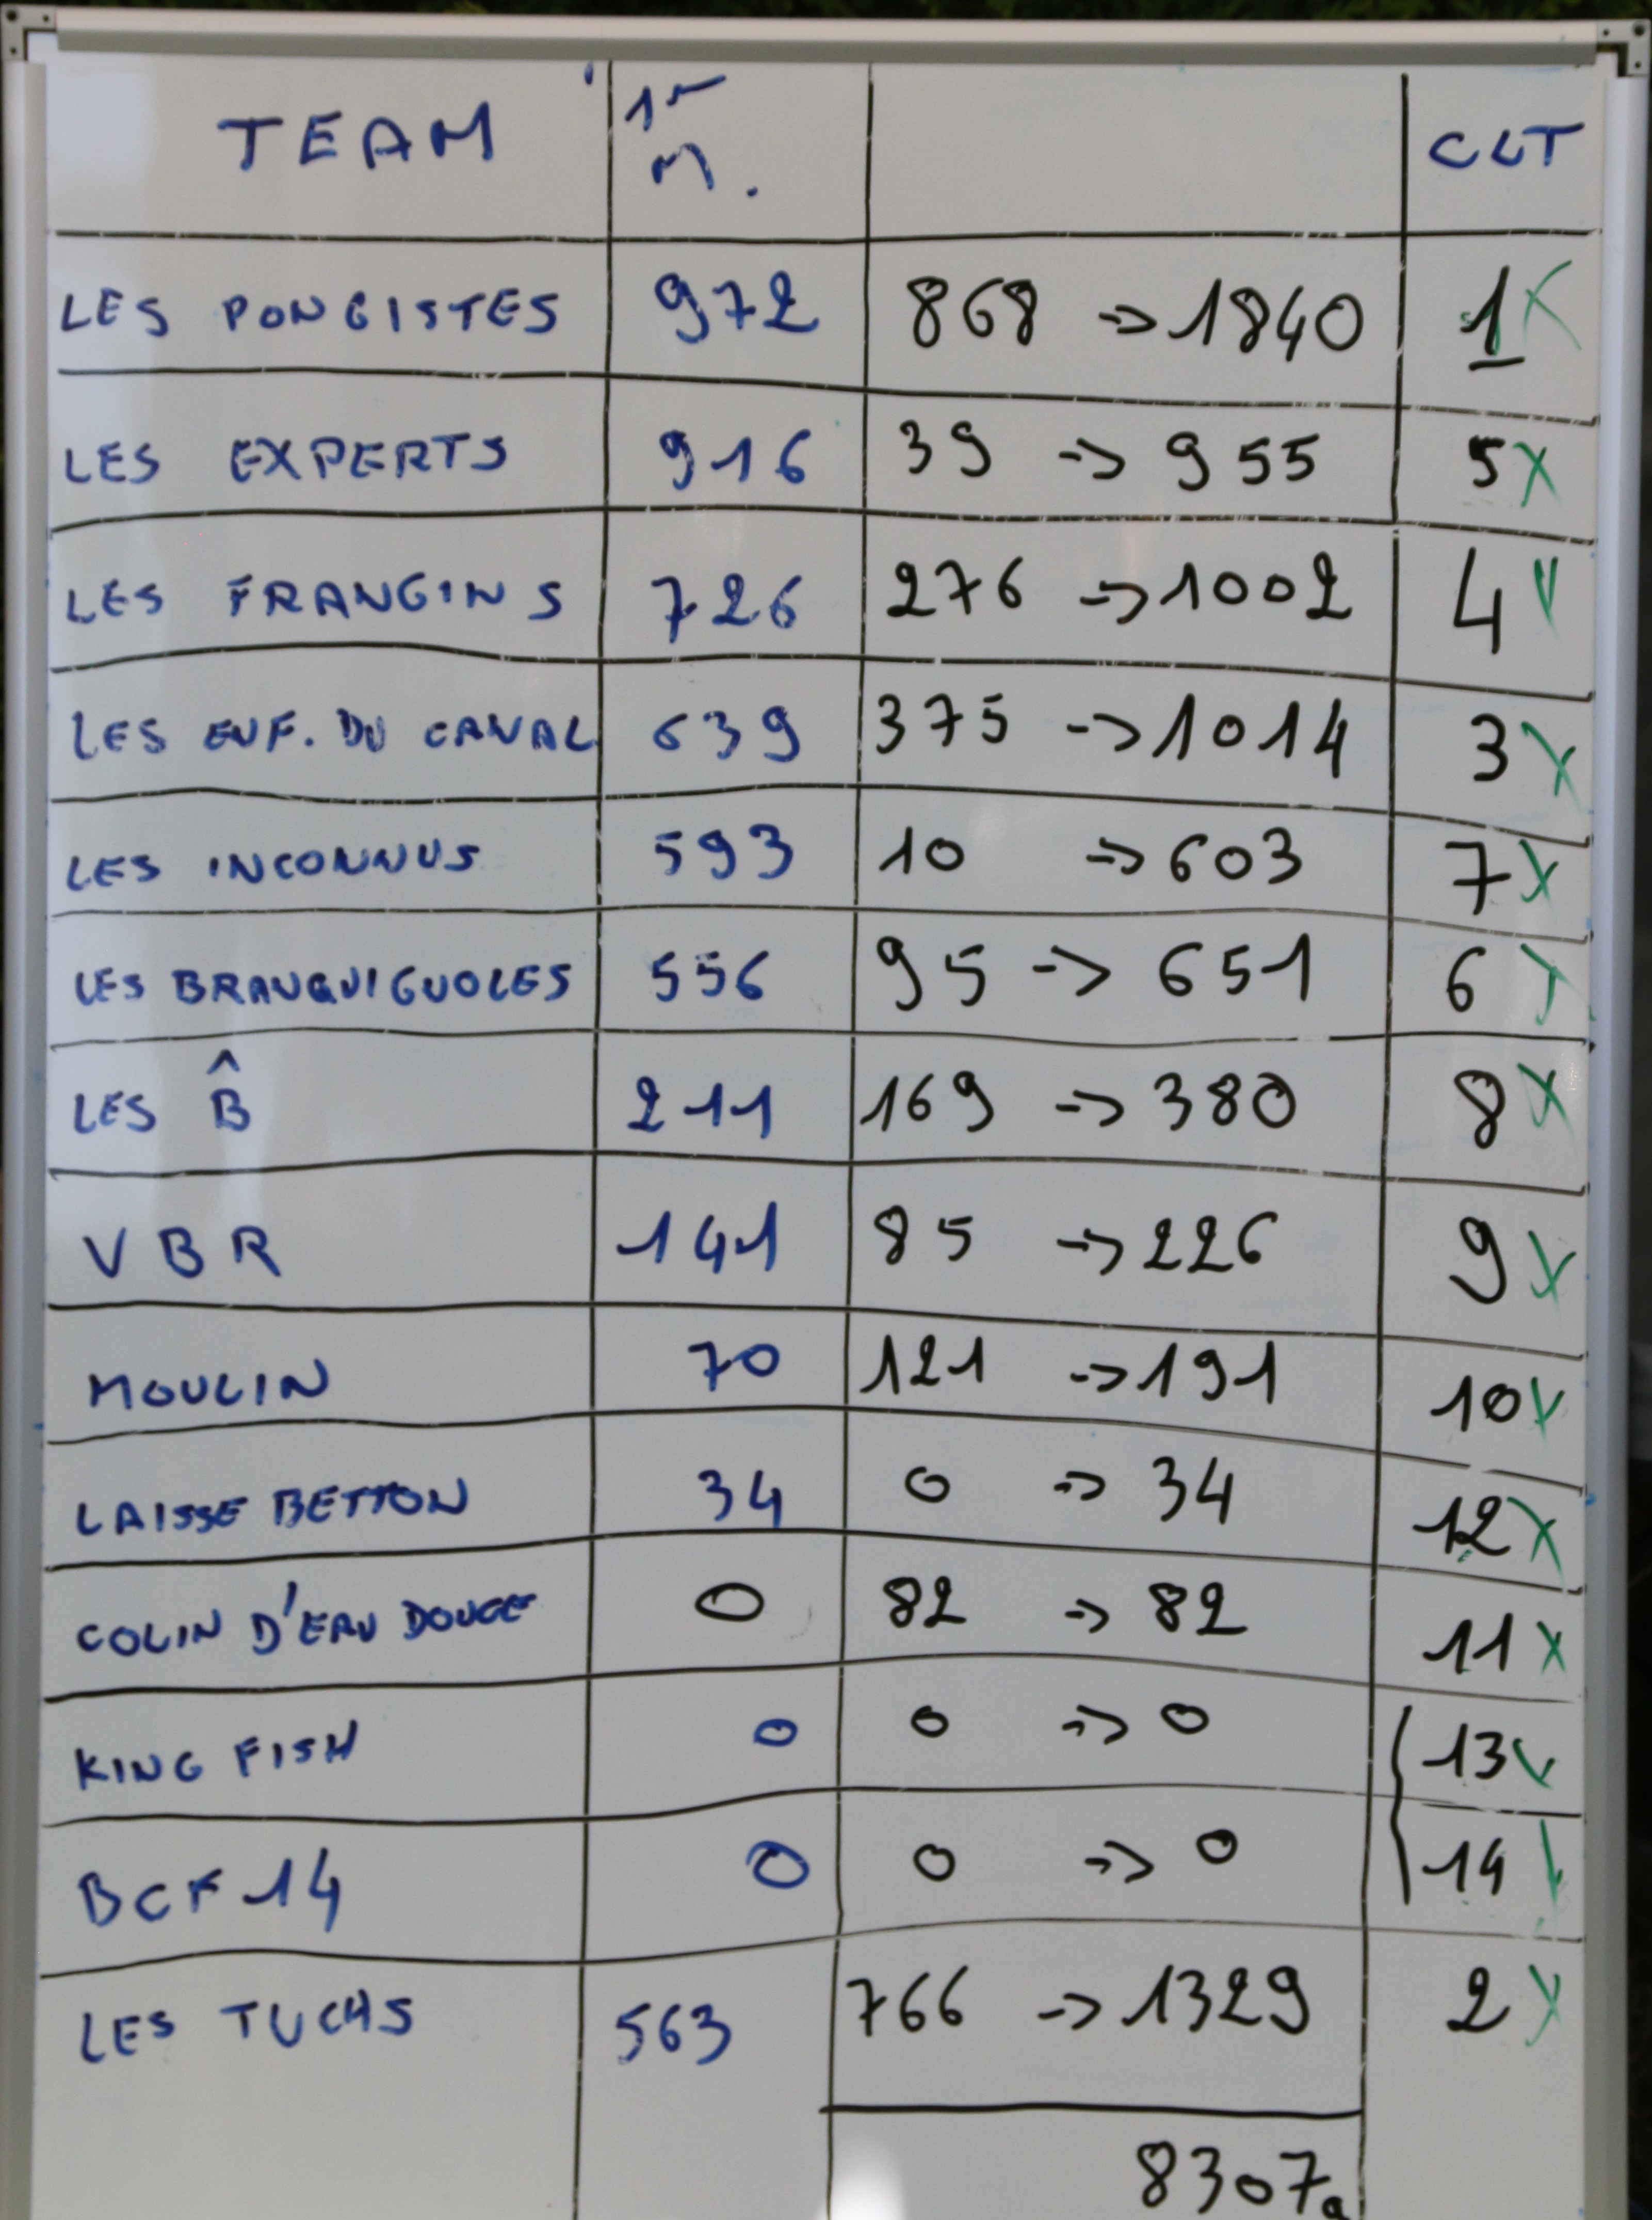 TEAM 1ᵉʳ M. CLT
LES PONGISTES 972 868 -> 1840 1
LES EXPERTS 916 39 -> 955 5
LES FRANGINS 726 276 -> 1002 4
LES ENF. DU CANAL 639 375 -> 1014 3
LES INCONNUS 593 10 -> 603 7
LES BRANQUIGNOLES 556 95 -> 651 6
LES B̂ 211 169 -> 380 8
VBR 141 85 -> 226 9
MOULIN 70 121 -> 191 10
LAISSE BETTON 34 0 -> 34 12
COLIN D'EAU DOUCE 0 82 -> 82 11
KING FISH 0 0 -> 0 13
BCF 14 0 0 -> 0 14
LES TUCHS 563 766 -> 1329 2
8307g